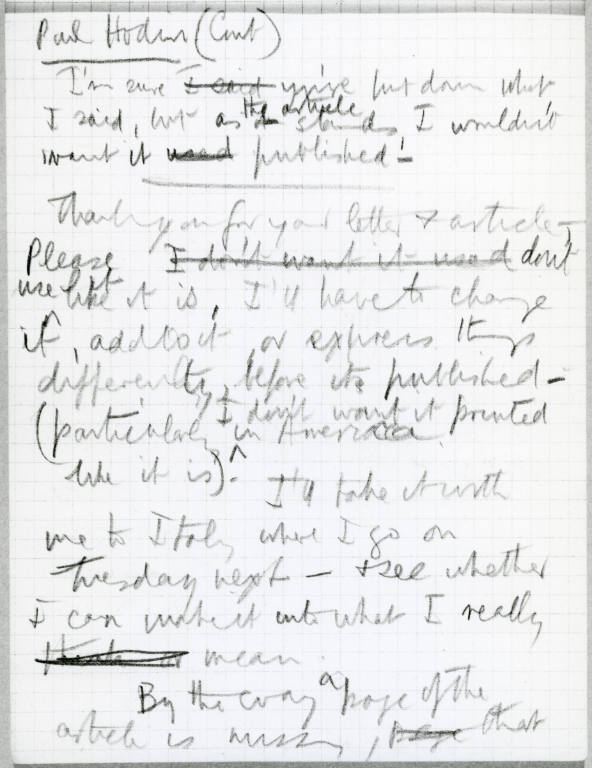 Paul Hodin (Cont)
I'm sure I said you've put down what
I said, but as the article stands I wouldn't
want it used published -
Thank you for your letter & article -
Please I don't want it used don't
use it like it is, I'll have to change
it, add to it, or express things
differently, before its published -
(particularly, I don't want it printed in America
like it is).
I'll take it with
me to Italy where I go on
Tuesday next - & see whether
I can make it into what I really
think or mean.
By the way a page of the
article is missing, page that